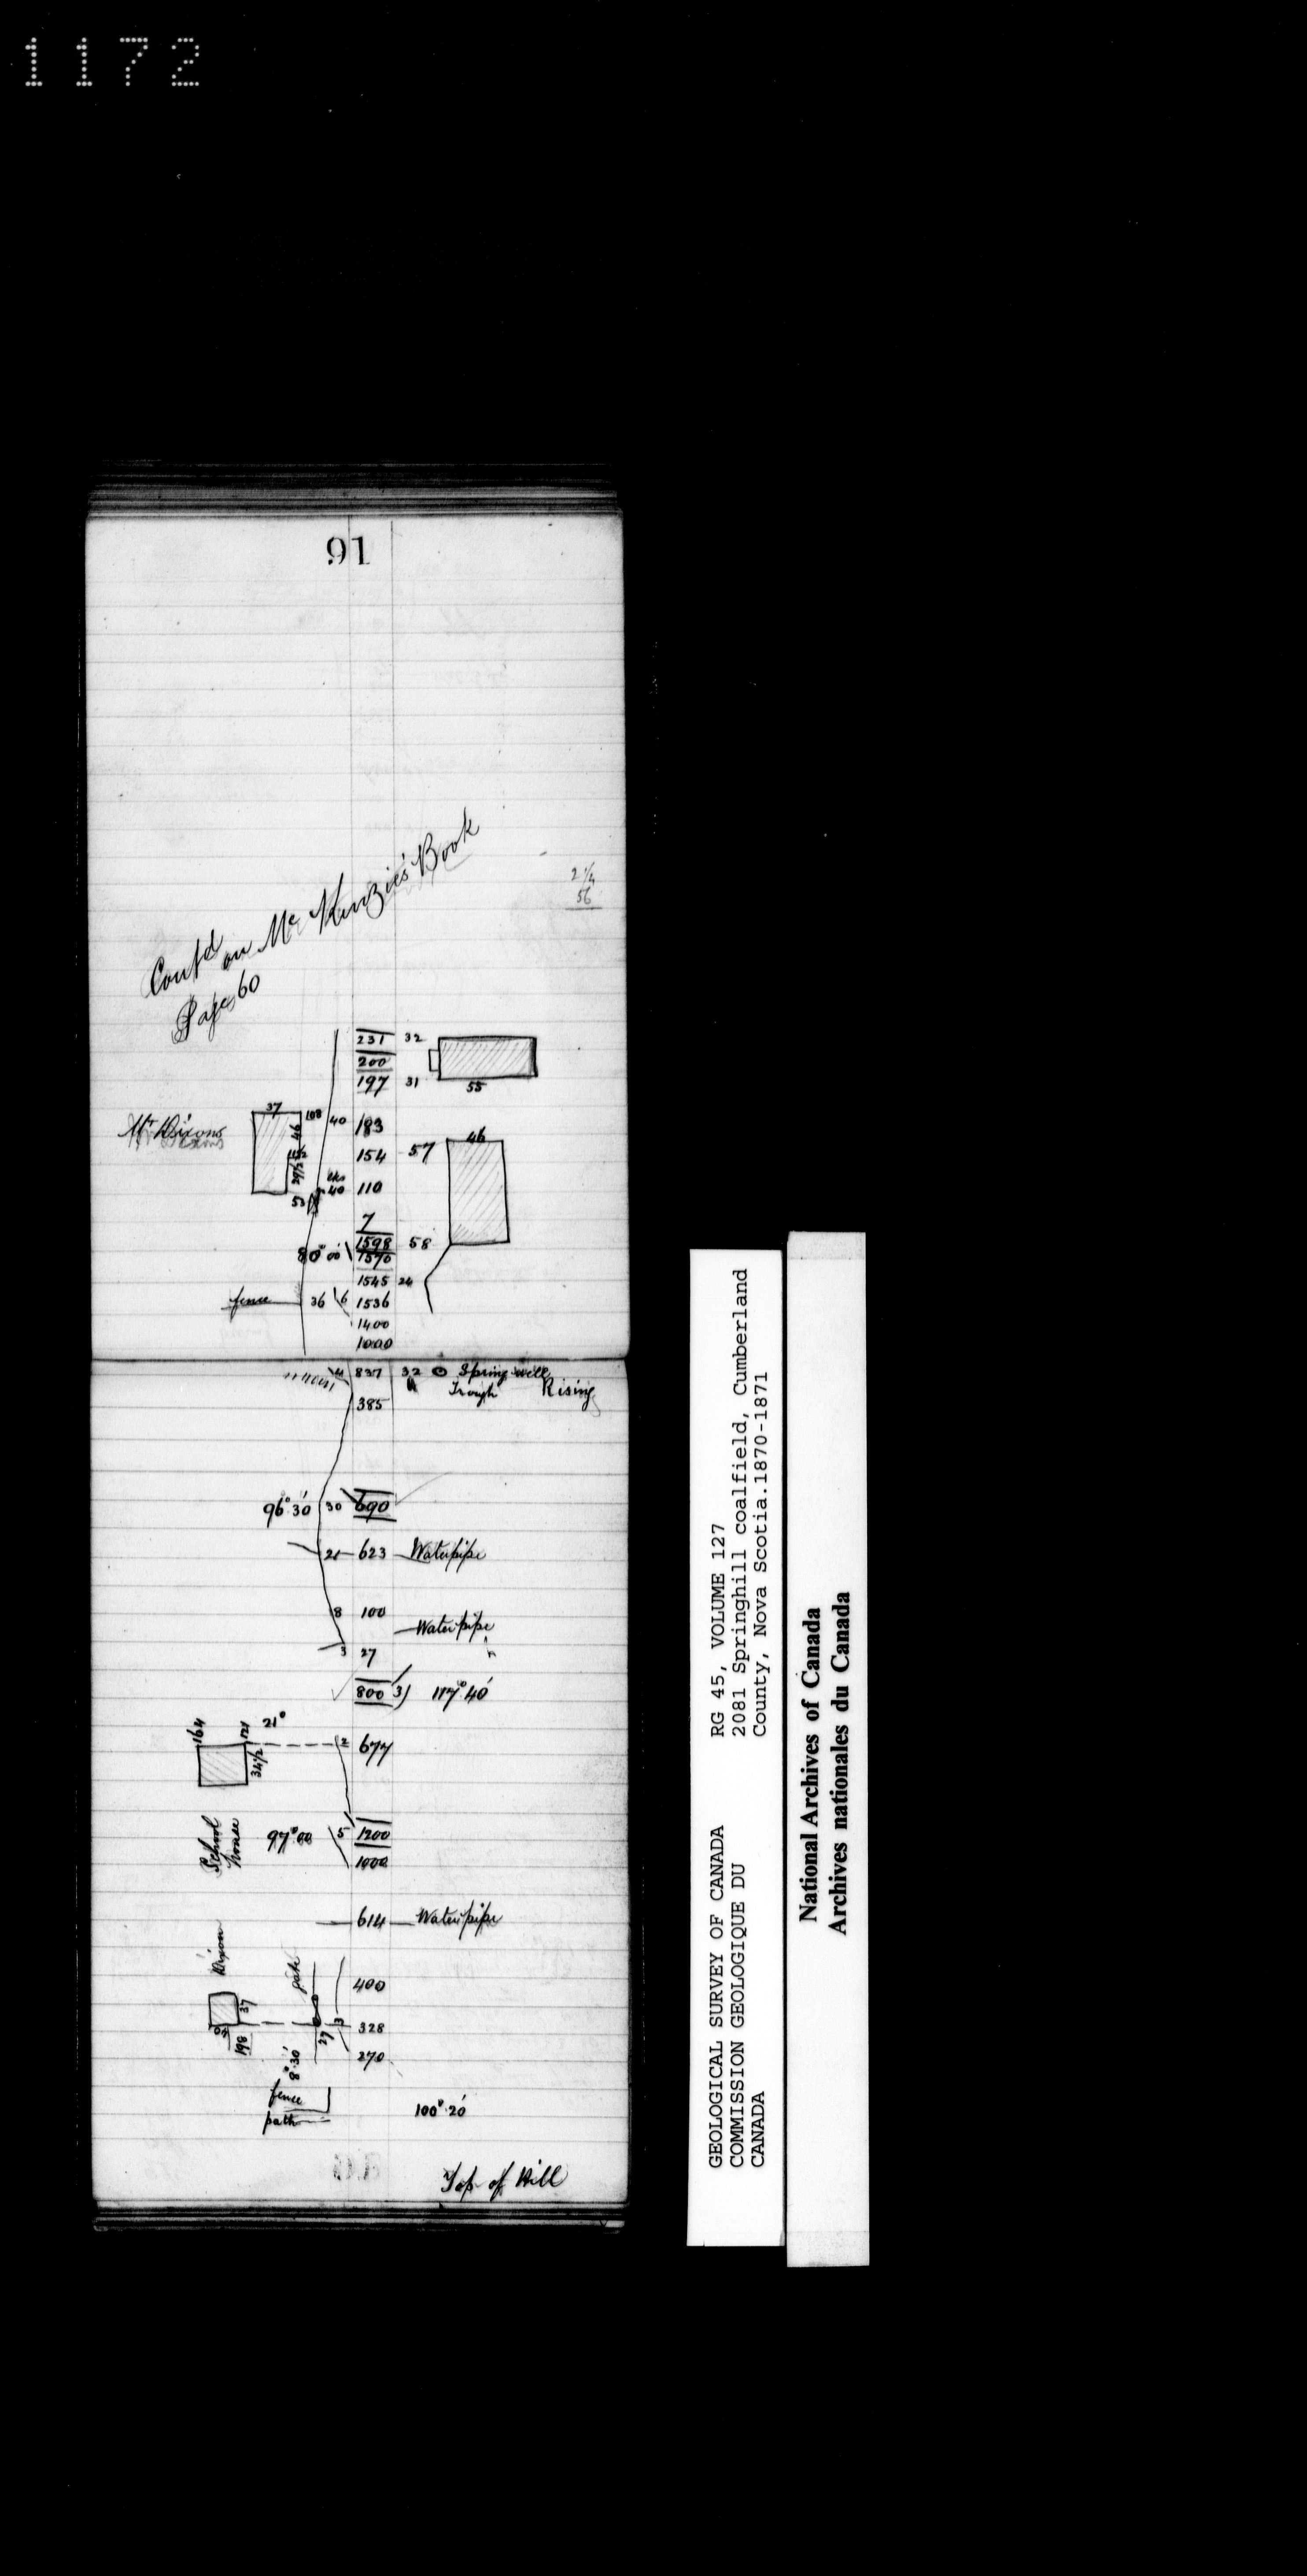 1172
91
Cont'd on Mc Kenzie's Book
Page 60
2 1/4
56
231 32
200
197 31
55
37 108 40 183
Mr Dixons
46
154 57 46
29 1/2
lks
53 40 110
7
1598 58
80° 00' 1570
1545 24
fence 36 6 1536
1400
1000
11 837 32 Spring well
Trough Rising
385
96° 30' 30 690
21 623 Waterpipe
8 100
Water pipe
3 27
800 3) 117° 40'
164 121 21° 12 677
34 1/2
School
house
97° 00' 5 1200
1000
614 Water pipe
Dixon
gate
400
37
27 3 328
198
270
8° 30'
fence
path
100° 20'
Top of Hill
GEOLOGICAL SURVEY OF CANADA
COMMISSION GEOLOGIQUE DU
CANADA
RG 45, VOLUME 127
2081 Springhill coalfield, Cumberland
County, Nova Scotia.1870-1871
National Archives of Canada
Archives nationales du Canada